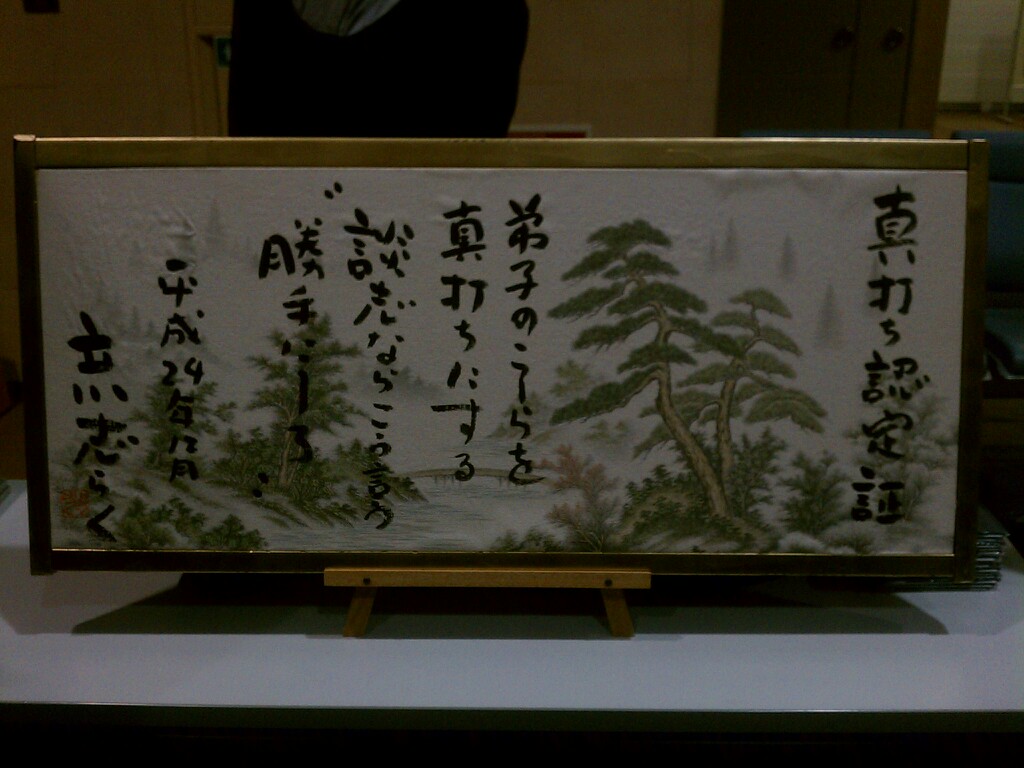 真打ち認定証
弟子のこしらを
真打ちにする
談志ならこう言う
"勝手にしろ"
平成24年12月
立川志らく